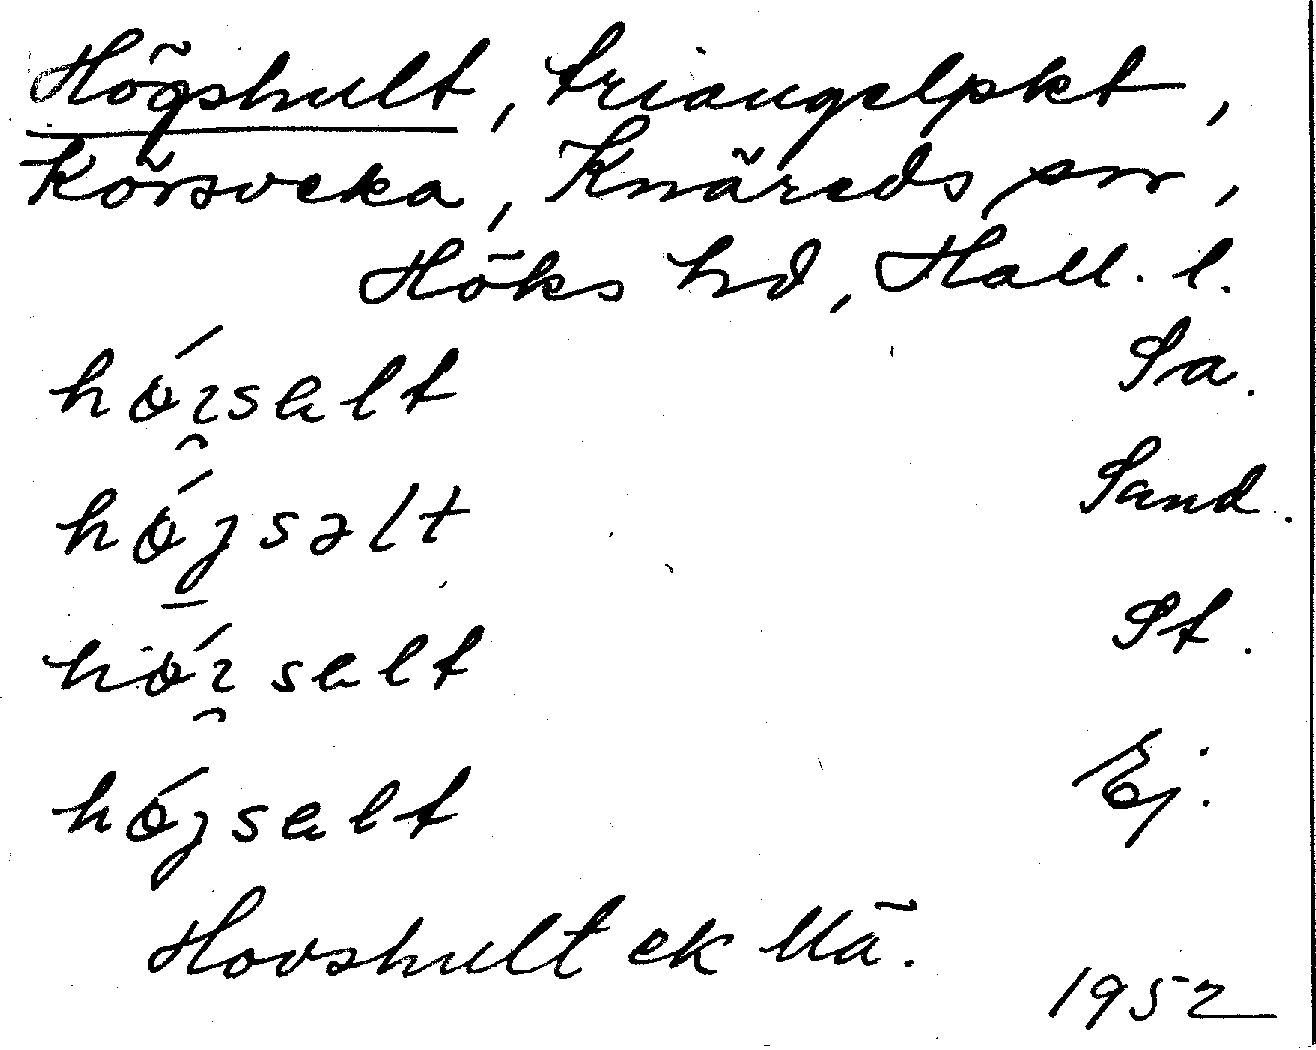 Högshult, triangelpkt,
Körsveka, Knäreds sn,
Höks hd, Hall. l.
hǿɿsalt Sa.
hǿjsəlt Sand.
hǿɿsalt St.
hǿjsalt Ej.
Hovshult ek
1952